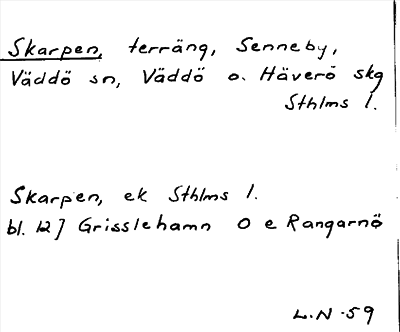 Skarpen, terräng, Senneby,
Väddö sn, Väddö o. Häverö skg
Sthlms l.
Skarpen, ek Sthlms l.
bl. 127 Grisslehamn O e Rangarnö
L.N -59